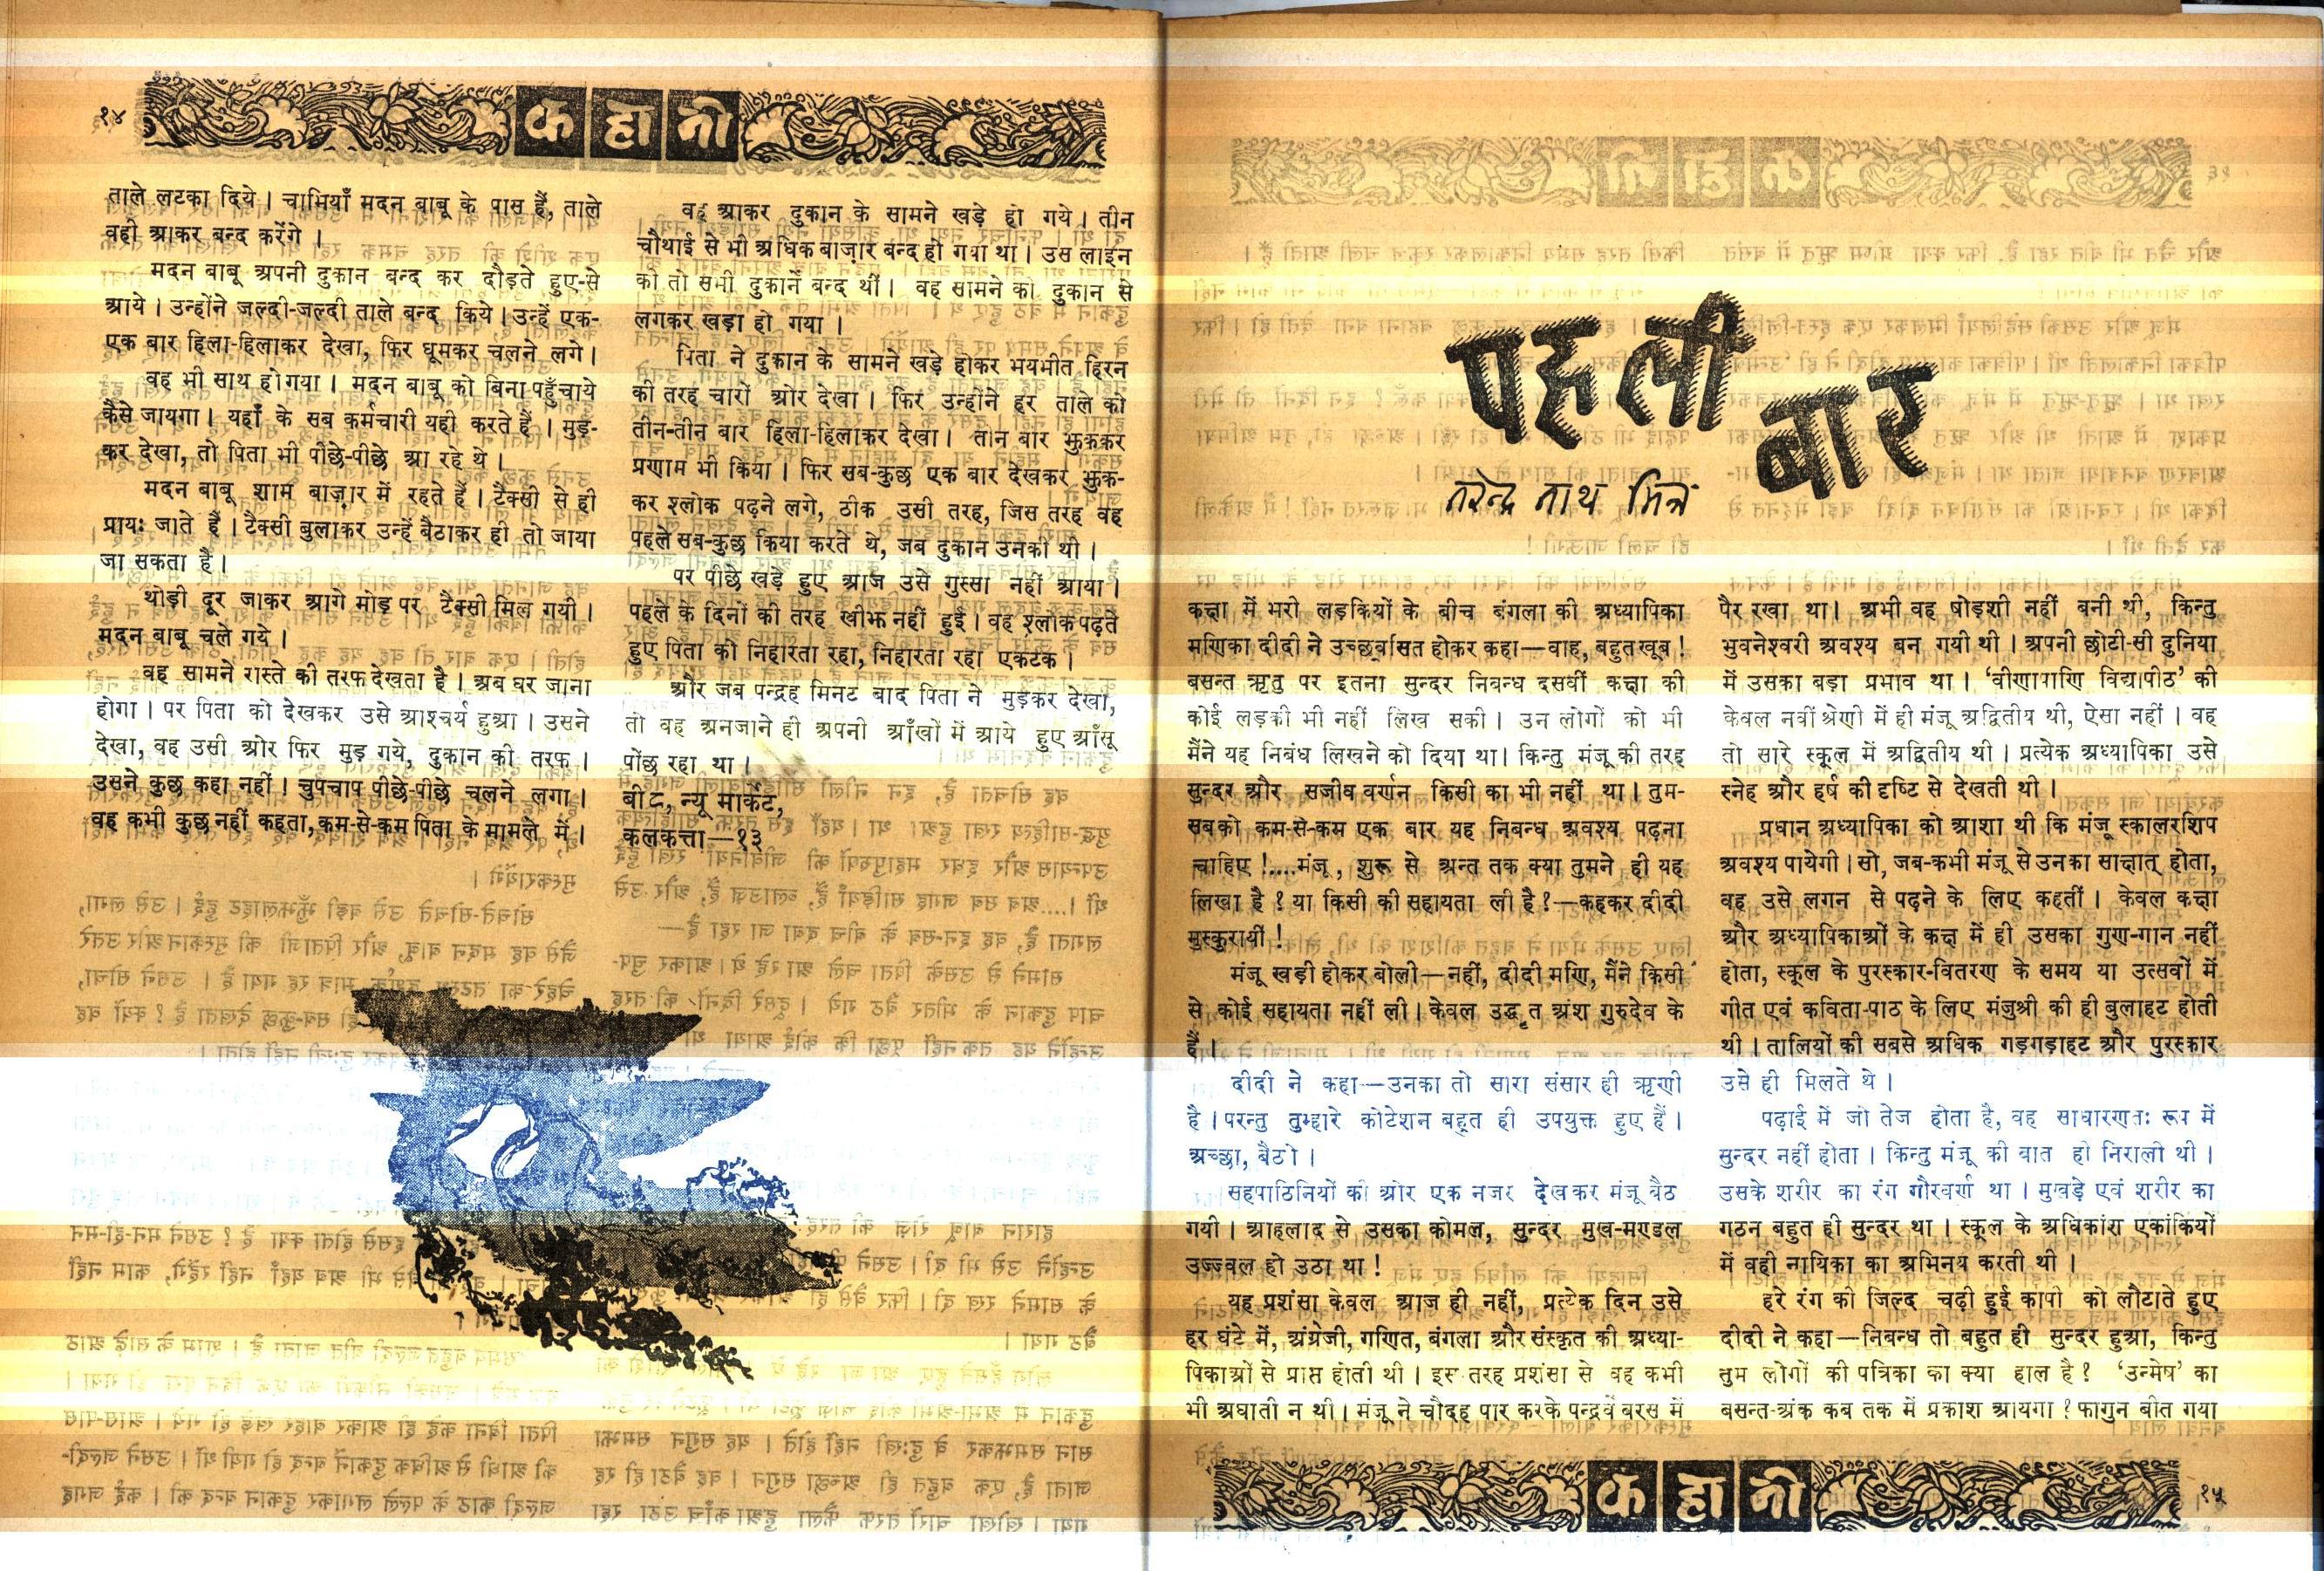 १४
कहानी
ताले लटका दिये । चाभियाँ मदन बाबू के पास हैं, ताले
वही आकर बन्द करेंगे ।
मदन बाबू अपनी दुकान बन्द कर दौड़ते हुए-से
आये । उन्होंने जल्दी-जल्दी ताले बन्द किये । उन्हें एक-
एक बार हिला-हिलाकर देखा, फिर घूमकर चलने लगे ।
वह भी साथ हो गया । मदन बाबू को बिना पहुँचाये
कैसे जायगा । यहाँ के सब कर्मचारी यही करते हैं । मुड़-
कर देखा, तो पिता भी पीछे-पीछे आ रहे थे ।
मदन बाबू शाम बाज़ार में रहते हैं । टैक्सी से ही
प्रायः जाते हैं । टैक्सी बुलाकर उन्हें बैठाकर ही तो जाया
जा सकता है ।
थोड़ी दूर जाकर आगे मोड़ पर टैक्सी मिल गयी ।
मदन बाबू चले गये ।
वह सामने रास्ते की तरफ देखता है । अब घर जाना
होगा । पर पिता को देखकर उसे आश्चर्य हुआ । उसने
देखा, वह उसी ओर फिर मुड़ गये, दुकान की तरफ ।
उसने कुछ कहा नहीं । चुपचाप पीछे-पीछे चलने लगा ।
वह कभी कुछ नहीं कहता, कम-से-कम पिता के मामले में ।
वह आकर दुकान के सामने खड़े हो गये । तीन
चौथाई से भी अधिक बाज़ार बन्द हो गया था । उस लाईन
की तो सभी दुकानें बन्द थीं । वह सामने की दुकान से
लगकर खड़ा हो गया ।
पिता ने दुकान के सामने खड़े होकर भयभीत हिरन
की तरह चारों ओर देखा । फिर उन्होंने हर ताले को
तीन-तीन बार हिला-हिलाकर देखा । तीन बार झुककर
प्रणाम भी किया । फिर सब-कुछ एक बार देखकर झुक-
कर श्लोक पढ़ने लगे, ठीक उसी तरह, जिस तरह वह
पहले सब-कुछ किया करते थे, जब दुकान उनकी थी ।
पर पीछे खड़े हुए आज उसे गुस्सा नहीं आया ।
पहले के दिनों की तरह खीझ नहीं हुई । वह श्लोक पढ़ते
हुए पिता को निहारता रहा, निहारता रहा एकटक ।
और जब पन्द्रह मिनट बाद पिता ने मुड़कर देखा,
तो वह अनजाने ही अपनी आँखों में आये हुए आँसू
पोंछ रहा था ।
बी८, न्यू मार्केट,
कलकत्ता—१३
पहली
बार
नरेन्द्र नाथ मित्र
कक्षा में भरी लड़कियों के बीच बंगला की अध्यापिका
मणिका दीदी ने उच्छ्वसित होकर कहा—वाह, बहुत खूब !
बसन्त ऋतु पर इतना सुन्दर निबन्ध दसवीं कक्षा की
कोई लड़की भी नहीं लिख सकी । उन लोगों को भी
मैंने यह निबंध लिखने को दिया था । किन्तु मंजू की तरह
सुन्दर और सजीव वर्णन किसी का भी नहीं था । तुम-
सबको कम-से-कम एक बार यह निबन्ध अवश्य पढ़ना
चाहिए !.....मंजू, शुरू से अन्त तक क्या तुमने ही यह
लिखा है ? या किसी की सहायता ली है ?—कहकर दीदी
मुस्कुरायीं !
मंजू खड़ी होकर बोली—नहीं, दीदी मणि, मैंने किसी
से कोई सहायता नहीं ली । केवल उद्धृत अंश गुरुदेव के
हैं ।
दीदी ने कहा—उनका तो सारा संसार ही ऋणी
है । परन्तु तुम्हारे कोटेशन बहुत ही उपयुक्त हुए हैं ।
अच्छा, बैठो ।
सहपाठिनियों की ओर एक नजर देखकर मंजू बैठ
गयी । आहलाद से उसका कोमल, सुन्दर मुख-मण्डल
उज्ज्वल हो उठा था !
यह प्रशंसा केवल आज ही नहीं, प्रत्येक दिन उसे
हर घंटे में, अंग्रेजी, गणित, बंगला और संस्कृत की अध्या-
पिकाओं से प्राप्त होती थी । इस तरह प्रशंसा से वह कभी
भी अघाती न थी । मंजू ने चौदह पार करके पन्द्रवें बरस में
पैर रखा था । अभी वह षोड़शी नहीं बनी थी, किन्तु
भुवनेश्वरी अवश्य बन गयी थी । अपनी छोटी-सी दुनिया
में उसका बड़ा प्रभाव था । ‘वीणापाणि विद्यापीठ’ की
केवल नवीं श्रेणी में ही मंजू अद्वितीय थी, ऐसा नहीं । वह
तो सारे स्कूल में अद्वितीय थी । प्रत्येक अध्यापिका उसे
स्नेह और हर्ष की दृष्टि से देखती थी ।
प्रधान अध्यापिका को आशा थी कि मंजू स्कालरशिप
अवश्य पायेगी । सो, जब-कभी मंजू से उनका साक्षात् होता,
वह उसे लगन से पढ़ने के लिए कहतीं । केवल कक्षा
और अध्यापिकाओं के कक्ष में ही उसका गुण-गान नहीं
होता, स्कूल के पुरस्कार-वितरण के समय या उत्सवों में
गीत एवं कविता-पाठ के लिए मंजुश्री की ही बुलाहट होती
थी । तालियों की सबसे अधिक गड़गड़ाहट और पुरस्कार
उसे ही मिलते थे ।
पढ़ाई में जो तेज होता है, वह साधारणतः रूप में
सुन्दर नहीं होता । किन्तु मंजू की बात ही निराली थी ।
उसके शरीर का रंग गौरवर्ण था । मुखड़े एवं शरीर का
गठन बहुत ही सुन्दर था । स्कूल के अधिकांश एकांकियों
में वही नायिका का अभिनय करती थी ।
हरे रंग की जिल्द चढ़ी हुई कापी को लौटाते हुए
दीदी ने कहा—निबन्ध तो बहुत ही सुन्दर हुआ, किन्तु
तुम लोगों की पत्रिका का क्या हाल है ? ‘उन्मेष’ का
बसन्त-अंक कब तक में प्रकाश आयगा ? फागुन बीत गया
कहानी
१५